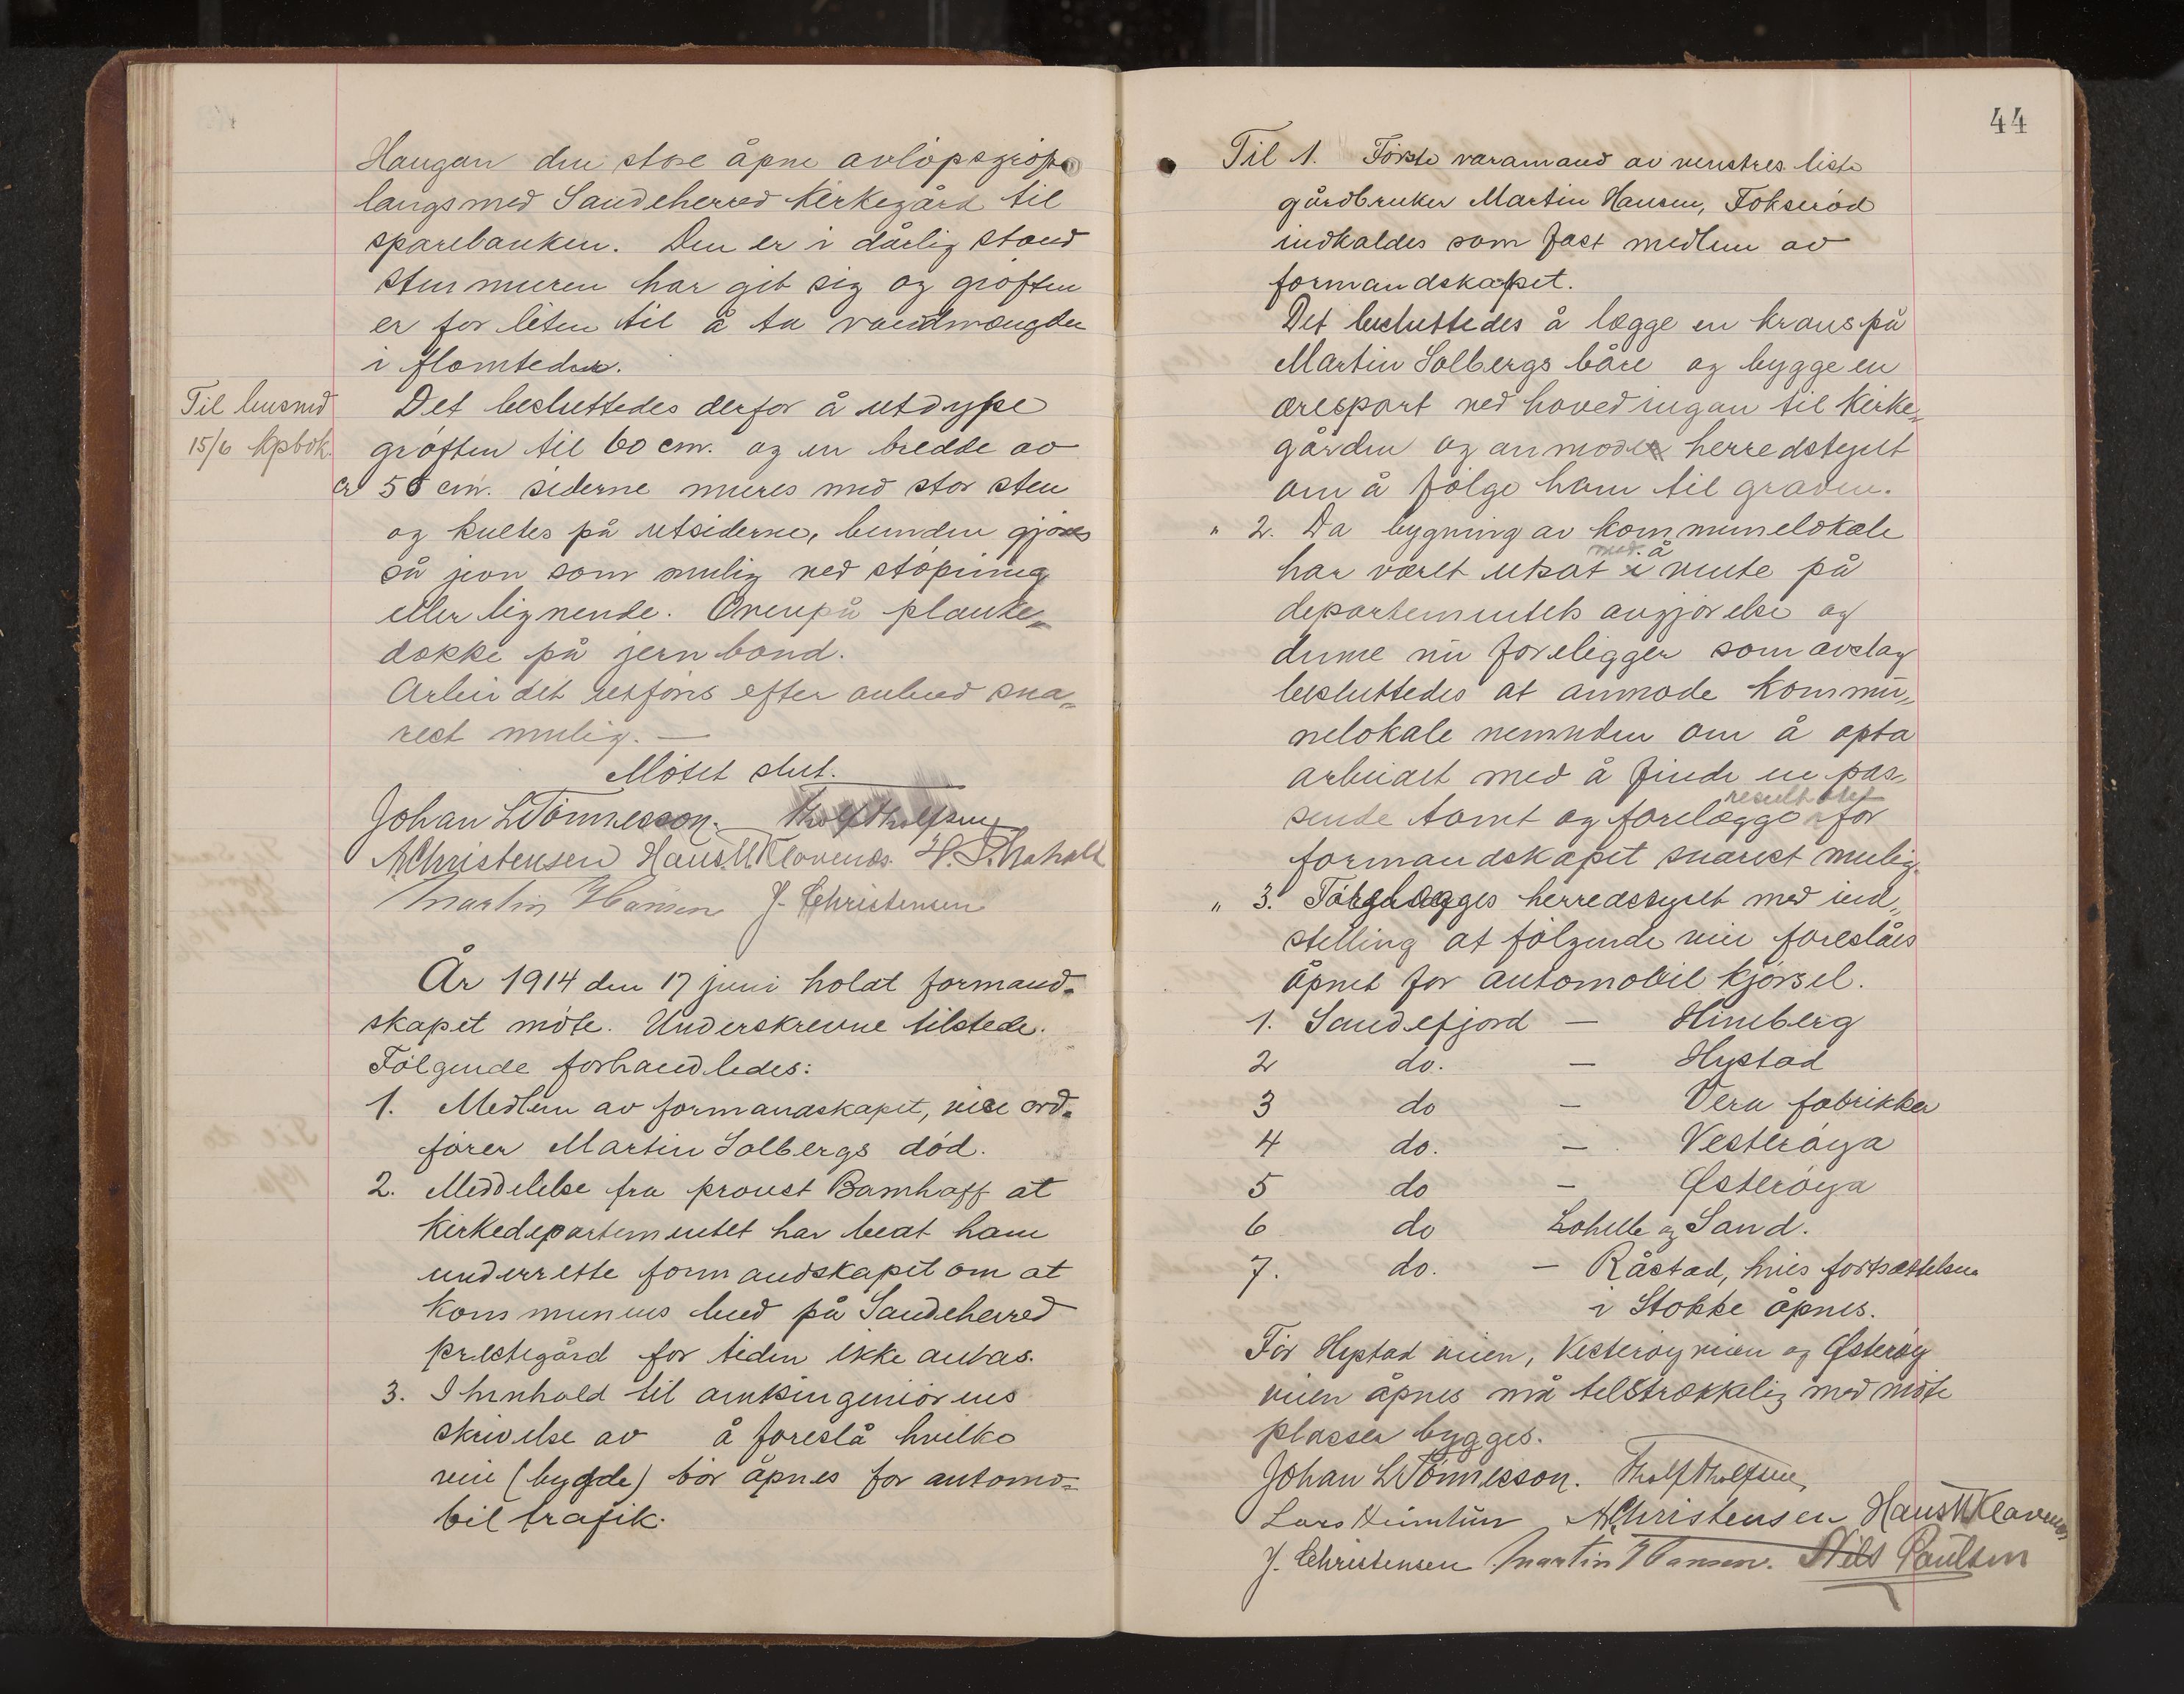 Haugan den store åpne avløpsgrøft
langsmed Sandeherred Kirkegård til
sparebanken. Den er i dårlig stand
stenmuren har git sig og grøften
er for liten til å ta vandmængden
i flomteder.
Til busmd
15/6 kpbok.
Det besluttedes derfor å utdype
grøften til 60 cm. og en bredde av
cr 50 cm. siderne mures med stor sten
og kultes på utsiderne, bunden gjøres
så jevn som mulig ved støpning
eller lignende. Ovenpå planke„
dække på jernbånd.
Arbeidet utføres efter anbud sna„
rest mulig. —
Møtet slut.
Johan L Tönnesson. Tholf Tholfsen
A Christensen Hans M Klavenes. H. P.
Martin Hansen J. Christensen
År 1914 den 17 juni holdt formand-
skapet møte. Underskrevne tilstede.
Følgende forhandledes:
1. Medlem av formandskapet, vice ord-
fører Martin Solbergs død.
2. Meddelelse fra proust Bomhoff at
Kirkedepartementet har bedt ham
underrette formandskapet om at
Kommunens bud på Sandeherred
prestegård for tiden ikke antas.
3. I henhold til amtsingeniørens
skrivelse av å foreslå hvilke
veie (bygde) bør åpnes for automo-
biltrafik.
44
Til 1. Første varamand av venstres liste
gårdbruker Martin Hansen, Fokserød
indkaldes som fast medlem av
formandskapet.
Det besluttedes å lægge en krans på
Martin Solbergs båre og bygge en
æresport ved hovedingan til Kirke„
gården og anmode herredstyret
om å følge ham til graven.
" 2. Da bygning av kommunelokale
med å
har været utsat i vente på
departementets avgjørelse og
denne nu foreligger som avslag
besluttedes at anmode Kommu„
nelokale nemnden om å opta
arbeidet med å finde en pas„
resultatet
sende tomt og forelægge for
formandskapet snarest mulig.
" 3. Forelægges herredstyret med ind„
stilling at følgende veie foreslåes
åpnet for automobilkjørsel.
1. Sandefjord — Himberg
2 do. — Hystad
3 do — Vera fabrikker
4 do. — Vesterøya
5 do — Østerøya
6 do Lohelle og Sand.
7. do. — Råstad, hvis fortsættelsen
i Stokke åpnes.
Før Hystad veien, Vesterøyveien og Østerøy
veien åpnes må tilstrækkelig med møte
plasser bygges.
Johan L Tönnesson. Tholf Tholfsen
Lars Heimtun A Christensen Hans M Klavenes
J. Christensen Martin Hansen. Nils Paulsen